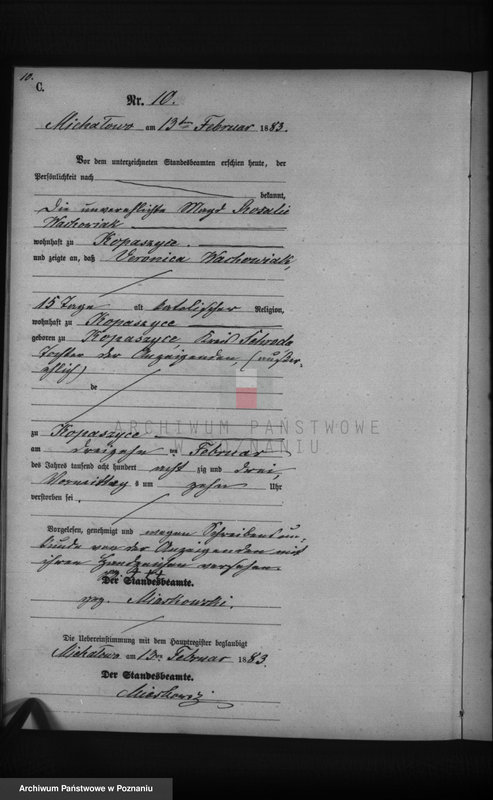 10.
C.
Nr. 10.
Michałowo am 13ten Februar 1883.
Vor dem unterzeichneten Standesbeamten erschien heute, der
Persönlichkeit nach
bekannt,
die unverehlichte Magd Rosalie
Wachowiak
wohnhaft zu Kopaszyce
und zeigte an, daß Veronica Wachowiak,
15 Tage alt katolischer Religion,
wohnhaft zu Kopaszyce
geboren zu Kopaszyce, Kreis Schroda
Tochter der Anzeigenden, (außer-
ehlich)
de
ARCHIWUM PAŃSTWOWE
W POZNANIU
zu Kopaszyce
am dreizehn ten Februar
des Jahres tausend acht hundert acht zig und drei,
Vormittag s um zehn Uhr
verstorben sei,
Vorgelesen, genehmigt und wegen Schreibensun-
kunde von der Anzeigenden mit
ihren Handzeichen versehen.
Der Standesbeamte.
gez. Miaskowski.
Die Uebereinstimmung mit dem Hauptregister beglaubigt
Michałowo am 13ten Februar 1883.
Der Standesbeamte.
Archiwum Państwowe w Poznaniu